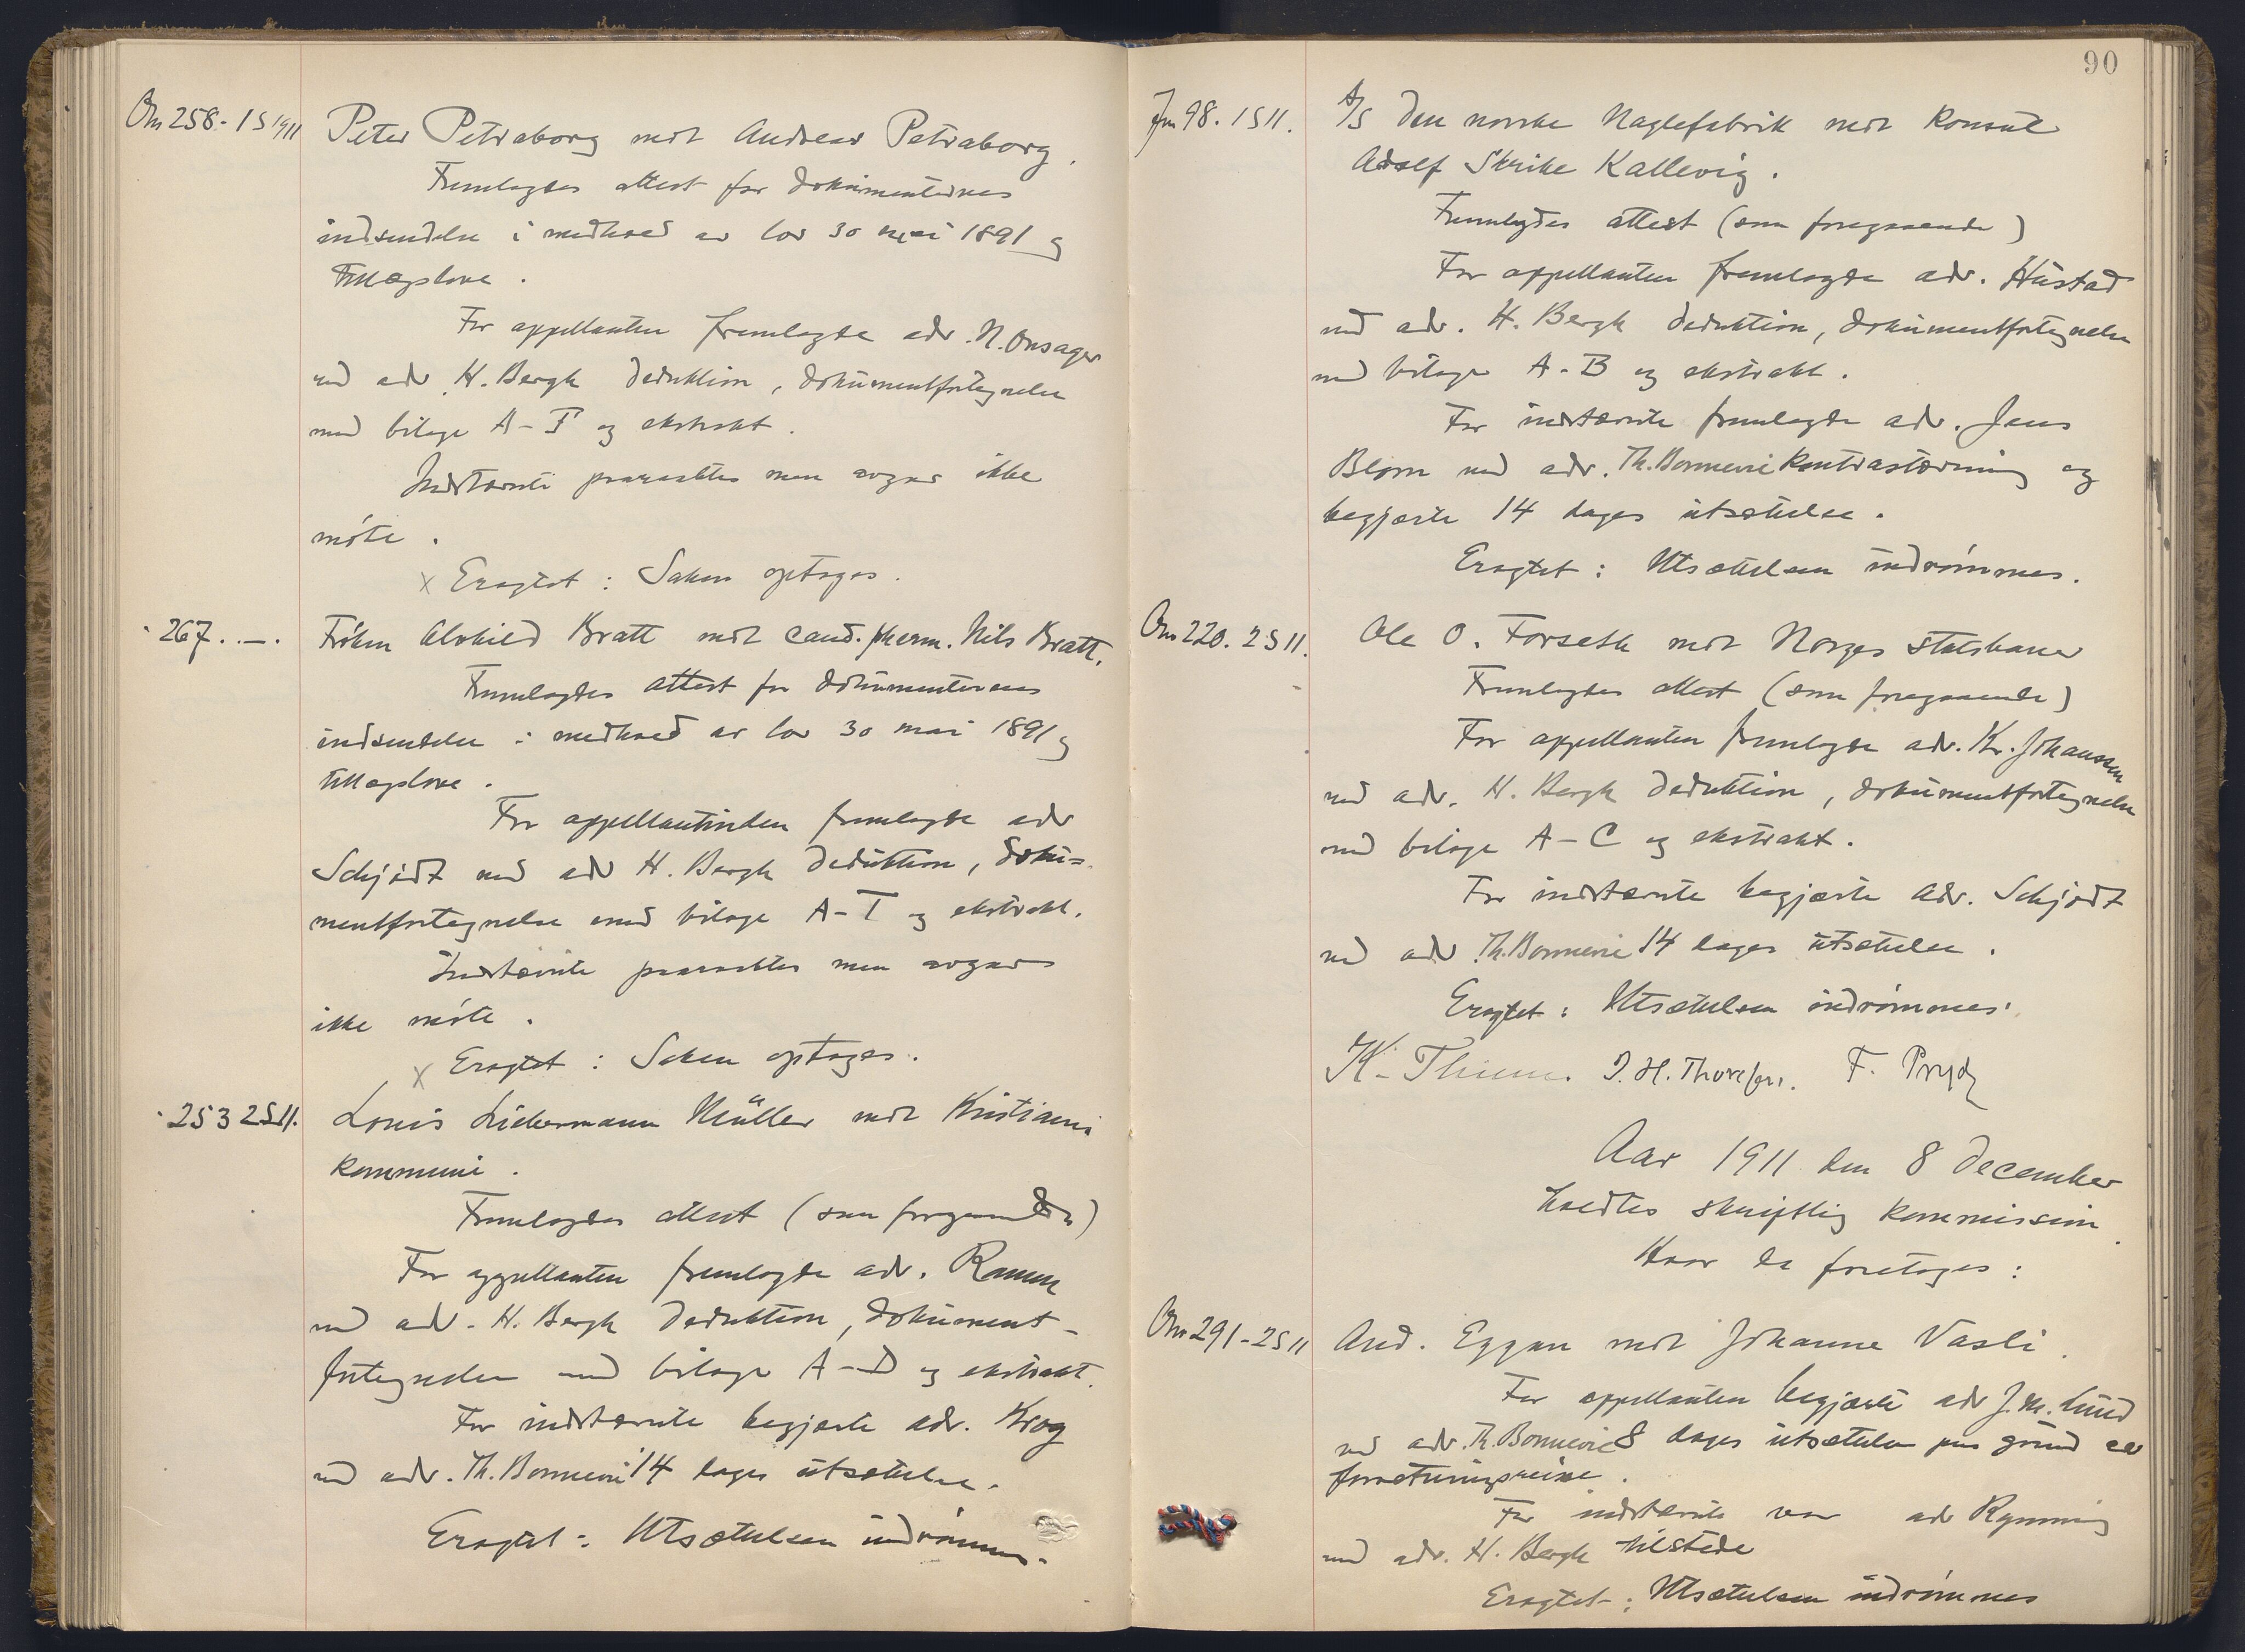 Om 258 - 1 S 1911
Peter Petraborg mot Andreas Petraborg.
Fremlagdes attest for dokumenternes
indsendelse i medhold av lov 30 mai 1891 og
tillægslove.
For appellanten fremlagde adv. N. Onsager
ved adv. H. Bergh deduktion, dokumentfortegnelse
med bilage A-F og ekstrakt.
Indstævnte paaraabtes men avgav ikke
møte.
x Eragtet: Saken optages.
" 267 . . — .
Frøken Alvhild Bratt mot cand. pharm. Nils Bratt.
Fremlagdes attest for dokumenternes
indsendelse i medhold av lov 30 mai 1891 og
tillægslove.
For appellantinden fremlagde adv
Schjødt ved adv H. Bergh deduktion, doku=
mentfortegnelse med bilage A-T og ekstrakt.
Indstævnte paaraabtes men avgav
ikke møte.
x Eragtet: Saken optages.
" 253 2 S 11.
Louis Lichermann Müller mot Kristiania
kommune.
Fremlagdes attest (som foregaaende)
For appellanten fremlagde adv. Ramm
ved adv. H. Bergh deduktion, dokument-
fortegnelse med bilage A-D og ekstrakt.
For indstævnte begjærte adv. Krog
ved adv. Th. Bonnevie 14 dages utsættelse.
Eragtet: Utsættelsen indrømmes.
90
Jm 98. 1 S 11.
A/S Den norske Naglefabrik mot Konsul
Adolf Skrike Kallevig.
Fremlagdes attest (som foregaaende)
For appellanten fremlagde adv. Hustad
ved adv. H. Bergh deduktion, dokumentfortegnelse
med bilage A-B og ekstrakt.
For indstævnte fremlagde adv. Jens
Blom ved adv. Th. Bonnevie kontrastævning og
begjærte 14 dages utsættelse.
Eragtet: Utsættelsen indrømmes.
Om 220. 2 S 11.
Ole O. Forseth mot Norges statsbaner
Fremlagdes attest (som foregaaende)
For appellanten fremlagde adv. Kr. Johanssen
ved adv. H. Bergh deduktion, dokumentfortegnelse
med bilage A-C og ekstrakt.
For indstævnte begjærte adv. Schjødt
ved adv Th. Bonnevie 14 dages utsættelse.
Eragtet: Utsættelsen indrømmes.
K. Thinn. F. Prydz
Aar 1911 den 8 december
holdtes skriftlig kommission.
Hvor da foretoges:
Om 291 - 2 S 11
And. Eggan mot Johanne Vasli.
For appellanten begjærte adv J. M. Lund
ved adv. Th. Bonnevie 8 dages utsættelse paa grund av
forretningsreise.
For indstævnte var adv Rynning
ved adv. H. Bergh tilstede
Eragtet: Utsættelsen indrømmes